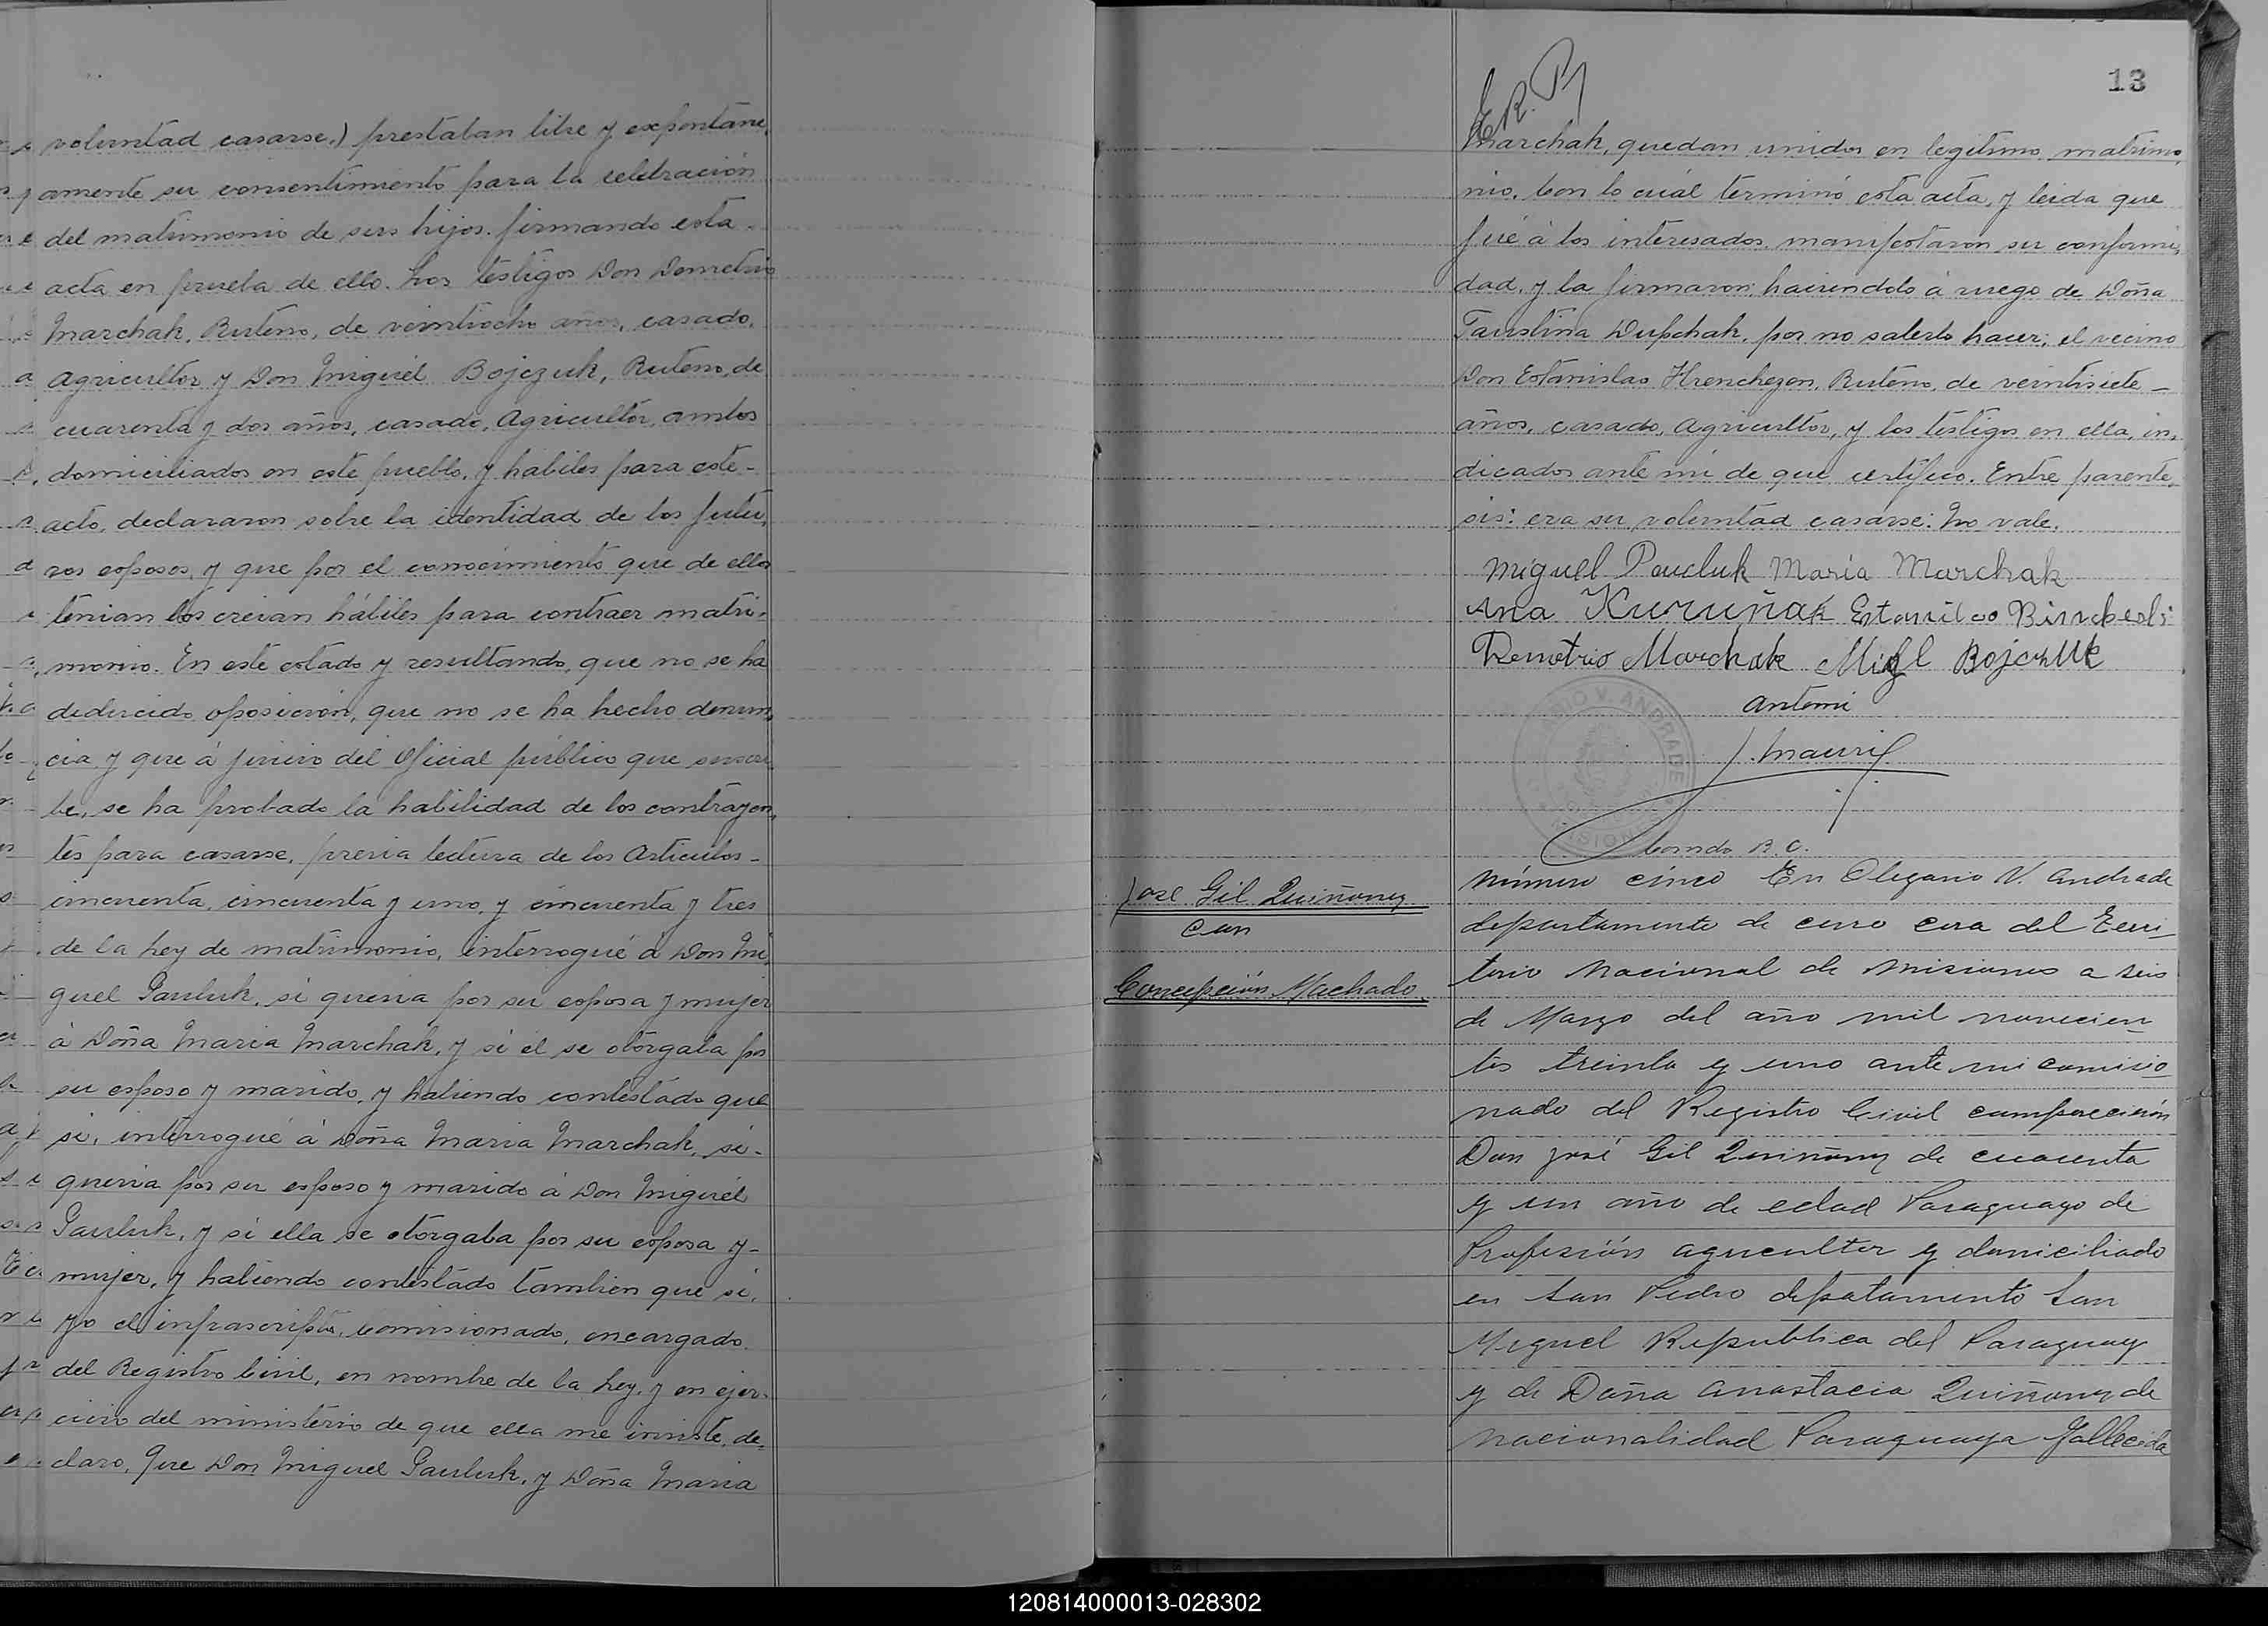 voluntad casarse.) prestaban libre y expontane,
amente su consentimiento para la celebración
del matrimonio de sus hijos. firmando esta.
acta en prueba de ello. Los testigos Don Demetrio
Marchak, Ruteno, de veintiocho años, casado,
Agricultor y Don Miguél Bojczuk, Ruteno, de
cuarenta y dos años, casado, Agricultor, ambos
domiciliados en este pueblo, y hábiles para este-
acto, declararon sobre la identidad de los futu,
ros esposos, y que por el conocimiento que de ellos
tenian los creian hábiles para contraer matri-
monio. En este estado y resultando, que no se ha
deducido oposicion, que no se ha hecho denun,
cia y que á juicio del Oficial público que suscri
be, se ha probado la habilidad de los contrayen,
tes para casarse, previa lectura de los Articulos-
cincuenta, cincuenta y uno, y cincuenta y tres
de la Ley de matrimonio, interrogué á Don Mi
guel Pauluk, si queria por su esposa y mujer
á Doña Maria Marchak, y si él se otorgaba por
su esposo y marido, y habiendo contestado que
si, interrogué á Doña Maria Marchak, si-
queria por su esposo y marido á Don Miguél
Pauluk, y si ella se otorgaba por su esposa y-
mujer, y habiendo contestado tambien que si,
yo el infrascripto, comisionado, encargado
del Registro Civil, en nombre de la Ley, y en ejer-
cicio del ministerio de que ella me inviste, de,
claro, Que Don Miguel Pauluk, y Doña Maria
13
E. R. P
Marchak, quedan unidos en legitimo matrimo,
nio. Con lo cuál terminó esta acta, y leida que
fué á los interesados manifestaron su conformi,
dad, y la firmaron; haciendolo á ruego de Doña
Faustina Dupchak, por no saberlo hacer; el vecino
Don Estanislao Hrenchezen, Ruteno, de veintisiete-
años, casado, Agricultor, y los testigos en ella, in,
dicados ante mi de que certifico. Entre parente,
sis: era su voluntad casarse: No vale.
Miguel Pauluk Maria Marchak
Ana Kuruñak
Demetrio Marchak Migl Bojczuk
Antemi
J. Mauri
Comdo R. C.
José Gil Quiñonez
Con
Concepción Machado
Número cinco En Olegario V. Andrade
departamento de cerro cora del Terri
torio Nacional de Misiones a seis
de Marzo del año mil novecien
tos treinta y uno ante mi comisio
nado del Registro Civil comparecieron
Don José Gil Quiñonez de cuarenta
y un año de edad Paraguayo de
Profesión agricultor y domiciliado
en San Pedro depatamento San
Miguel Republica del Paraguay
y de Doña Anastacia Quiñonez de
Nacionalidad Paraguaya Fallecida
120814000013-028302